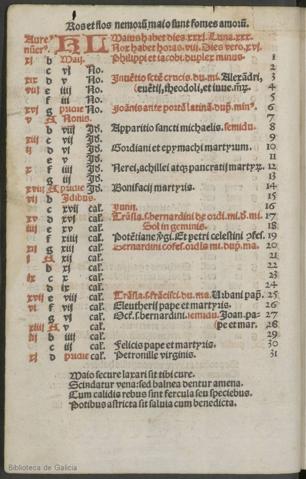 Ros et flos nemorũ maio sunt fomes amorũ.
Aure⸗ KL Maius habet dies .xxxj. Luna .xxx.
nũer⸗. Nox habet horas .viij. Dies vero .xvj.
xj b Maij. Philippi et iacobi. duplex minus 1
c vj No. 2
xix d v No. Inuẽtio sctẽ crucis. du. mi. Alexãdri, 3
viij e iiij No. (euẽtij, theodoli, et iuue. m̃ꝝ. 4
f iij No. 5
xvj g pridie No. Joãnis ante portã latinã. dup̃. min⁹. 6
v A Nonis. 7
b viij Jd. Apparitio sancti michaelis. semidu. 8
xiij c vij Jd. 9
ij d vj Jd. Gordiani et epymachi martyrum. 10
e v Jd. 11
x f iiij Jd. Nerei, achillei atqꝫ pancratij martyꝝ. 12
g iij Jd. 13
xviij A pridie Jd. Bonifacij martyris. 14
vij b Jdibus. 15
c xvij cal. Junij. 16
xv d xvj cal. Trãsla. s. bernardini de ordi. mi. d. mi. 17
iiij e xv cal. Sol in geminis. 18
f xiiij cal. Potẽtiane ỹgĩ. Et petri celestini ɔfes. 19
xij g xiij cal. Bernardini cofes. ordis mi. dup̃. ma. 20
j A xij cal. 21
b xj cal. 22
ix c x cal. 23
d ix cal. 24
xvij e viij cal. Trãsla. s. frãcisci. du. ma. Urbani pap̃. 25
vj f vij cal. Eleutherij pape et martyris. 26
g vj cal. Oct̃. s. bernardini. semidu. Joan. pa⸗ 27
xiiij A v cal. (pe et mar. 28
iij b iiij cal. 29
c iij cal. Felicis pape et martyris. 30
xj d pridie cal. Petronille virginis. 31
Maio secure laxari sit tibi cure.
Scindatur vena: sed balnea dentur amena.
Cum calidis rebus sint fercula seu speciebus.
Potibus astricta sit saluia cum benedicta.
Biblioteca de Galicia